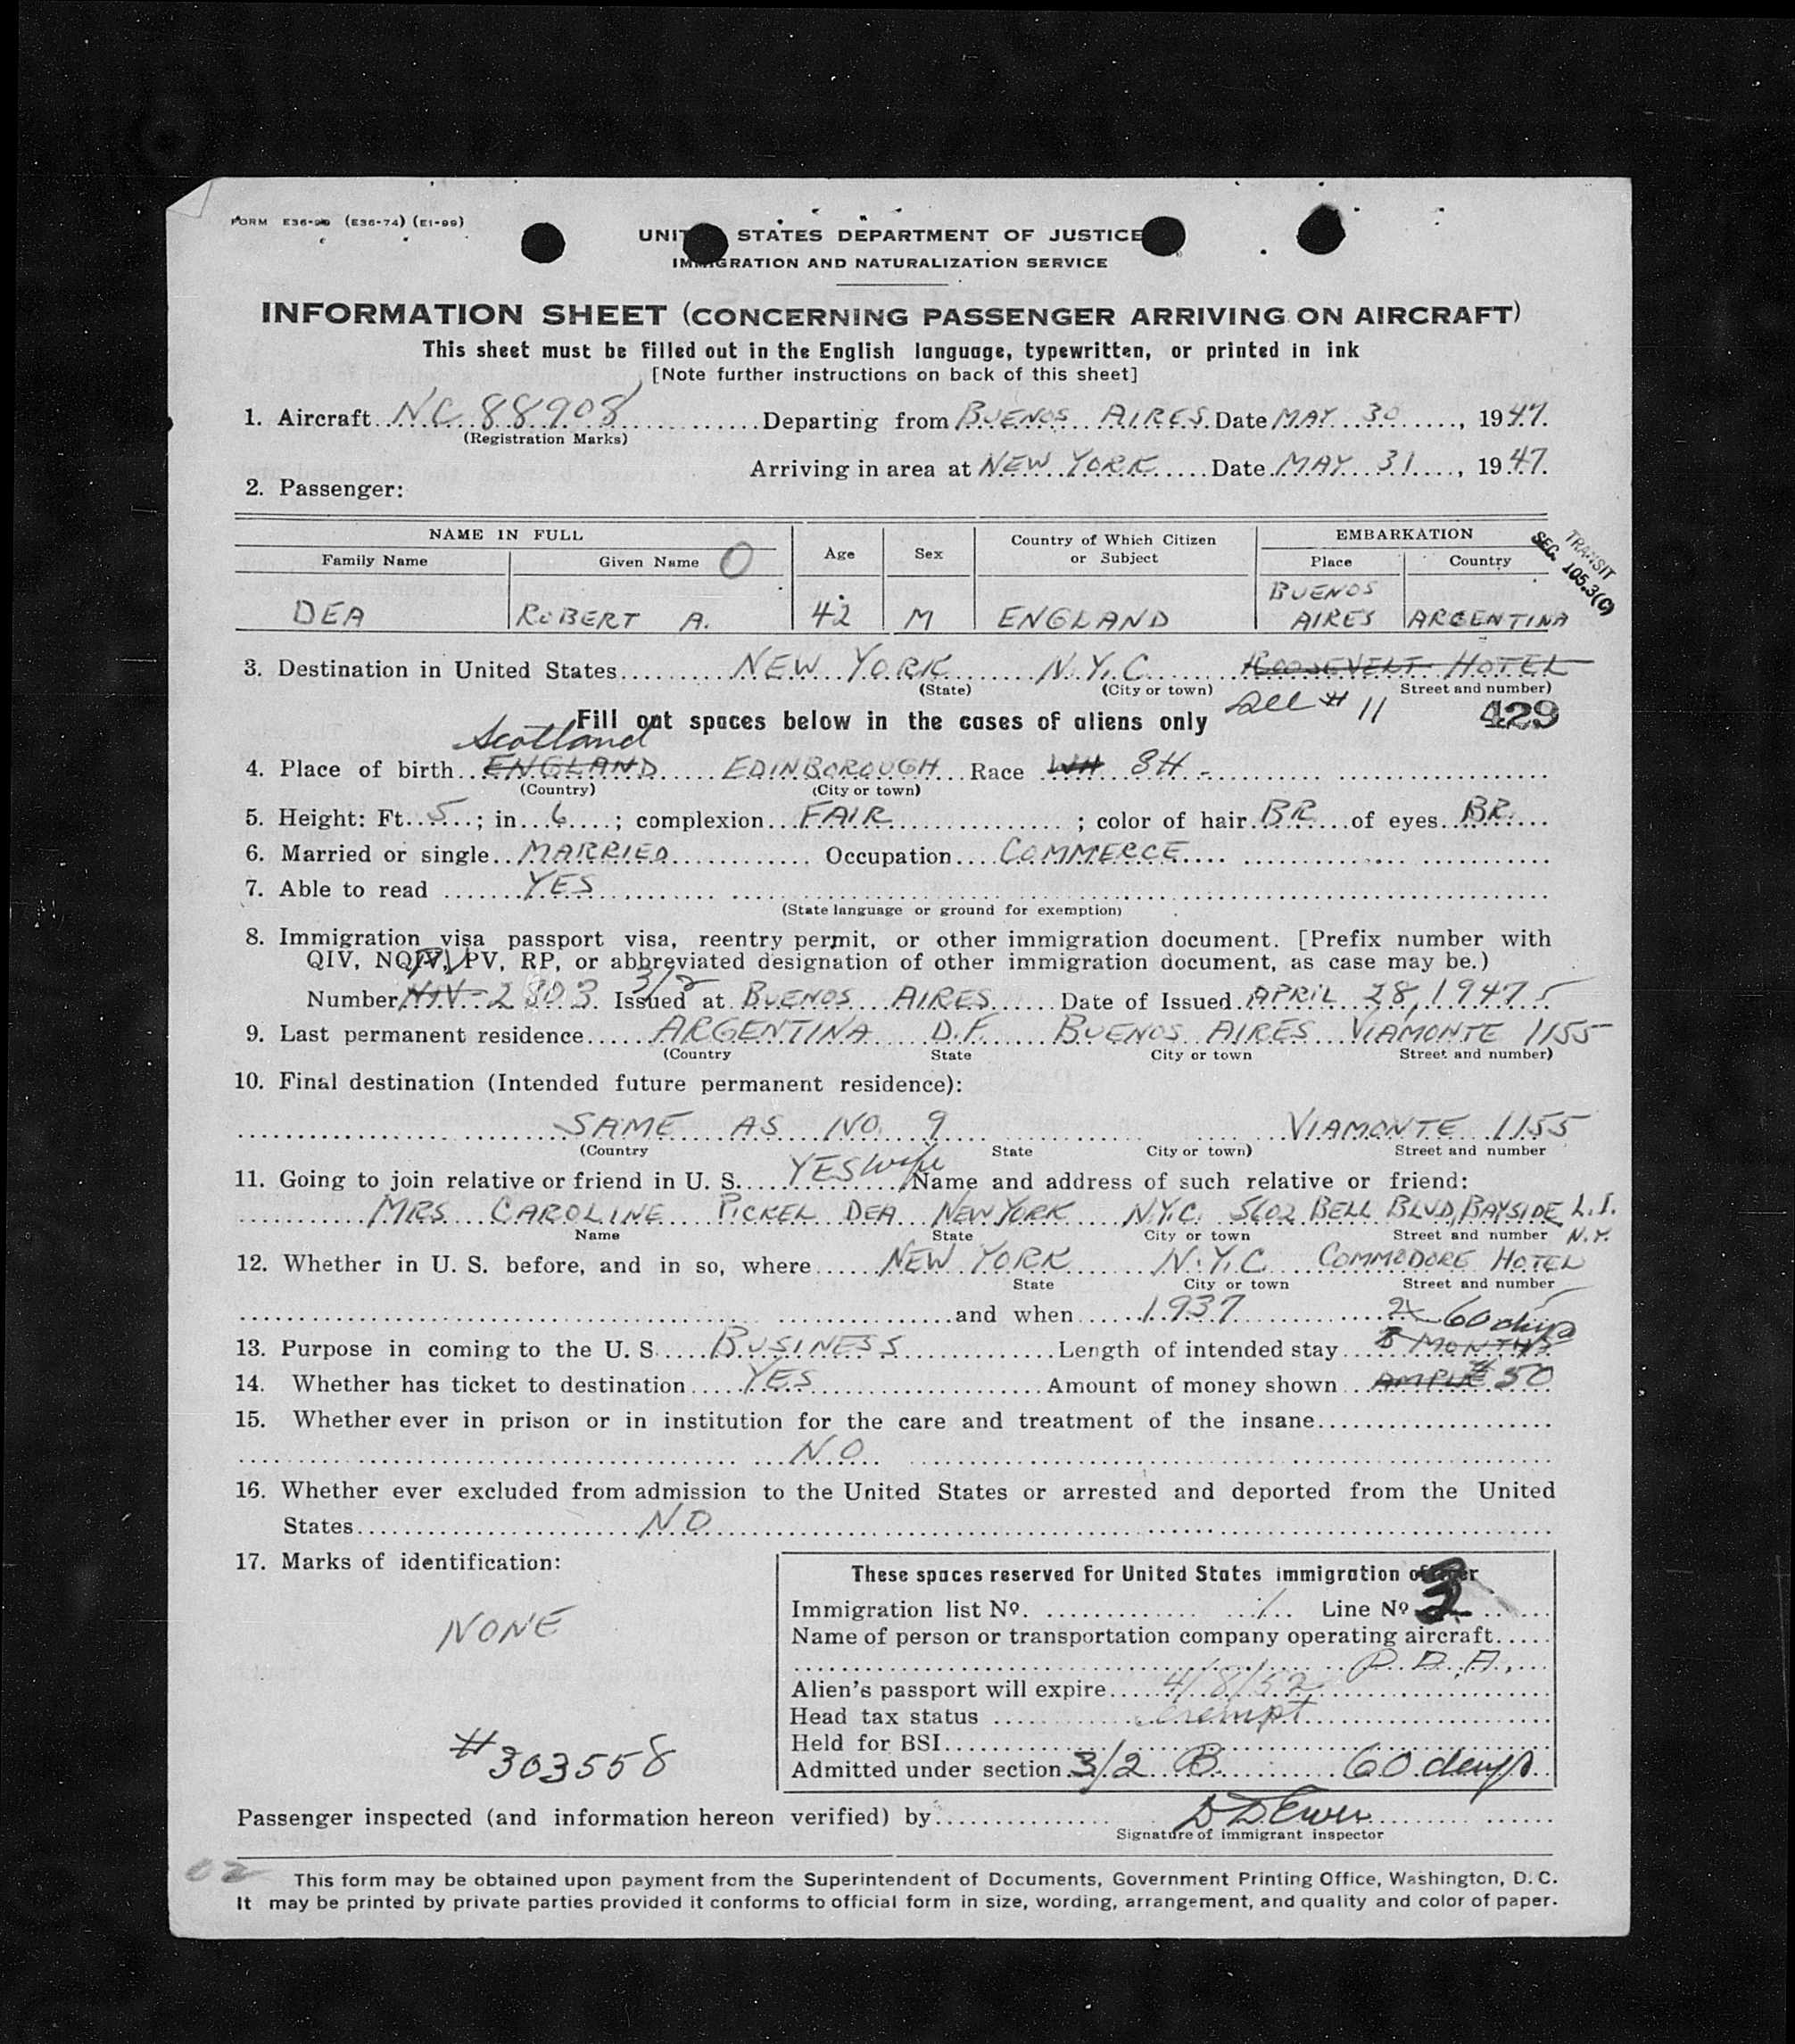 FORM E36-99 (E36-74) (E1-99)
UNITED STATES DEPARTMENT OF JUSTICE
IMMIGRATION AND NATURALIZATION SERVICE
INFORMATION SHEET (CONCERNING PASSENGER ARRIVING ON AIRCRAFT)
This sheet must be filled out in the English language, typewritten, or printed in ink
[Note further instructions on back of this sheet]
1. Aircraft NC 88908 Departing from BUENOS AIRES Date MAY 30, 1947.
(Registration Marks)
Arriving in area at NEW YORK Date MAY 31, 1947.
2. Passenger:
NAME IN FULL Age Sex Country of Which Citizen or Subject EMBARKATION
Family Name Given Name O Place Country
TRANSIT
SEC. 105.3(C)
DEA ROBERT A. 42 M ENGLAND BUENOS AIRES ARGENTINA
3. Destination in United States NEW YORK N.Y.C. ROOSEVELT HOTEL
(State) (City or town) Street and number)
Fill out spaces below in the cases of aliens only See # 11 429
Scotland
4. Place of birth ENGLAND EDINBOROUGH Race WH SH -
(Country) (City or town)
5. Height: Ft. 5; in 6; complexion FAIR; color of hair BR of eyes BR.
6. Married or single MARRIED Occupation COMMERCE
7. Able to read YES
(State language or ground for exemption)
8. Immigration visa passport visa, reentry permit, or other immigration document. [Prefix number with
QIV, NQIV, PV, RP, or abbreviated designation of other immigration document, as case may be.)
3/2
Number NIV - 2803 Issued at BUENOS AIRES Date of Issued APRIL 28, 1947
9. Last permanent residence ARGENTINA D.F. BUENOS AIRES VIAMONTE 1155
(Country State City or town Street and number)
10. Final destination (Intended future permanent residence):
SAME AS NO. 9 VIAMONTE 1155
(Country State City or town) Street and number
11. Going to join relative or friend in U. S. YES Wife Name and address of such relative or friend:
MRS CAROLINE PICKEL DEA NEW YORK N.Y.C. 5602 BELL BLVD, BAYSIDE L.I.
Name State City or town Street and number N.Y.
12. Whether in U. S. before, and in so, where NEW YORK N.Y.C. COMMODORE HOTEL
State City or town Street and number
and when 1937
60 days
13. Purpose in coming to the U. S. BUSINESS Length of intended stay MONTHS
14. Whether has ticket to destination YES Amount of money shown AMPLE $50
15. Whether ever in prison or in institution for the care and treatment of the insane
NO
16. Whether ever excluded from admission to the United States or arrested and deported from the United
States NO
17. Marks of identification:
NONE
#303558
These spaces reserved for United States immigration officer
Immigration list No. 1 Line No 3
Name of person or transportation company operating aircraft
P. A. A.,
Alien's passport will expire 4/8/52
Head tax status exempt
Held for BSI
Admitted under section 3/2 B 60 days
Passenger inspected (and information hereon verified) by
Signature of immigrant inspector
02
This form may be obtained upon payment from the Superintendent of Documents, Government Printing Office, Washington, D. C.
It may be printed by private parties provided it conforms to official form in size, wording, arrangement, and quality and color of paper.